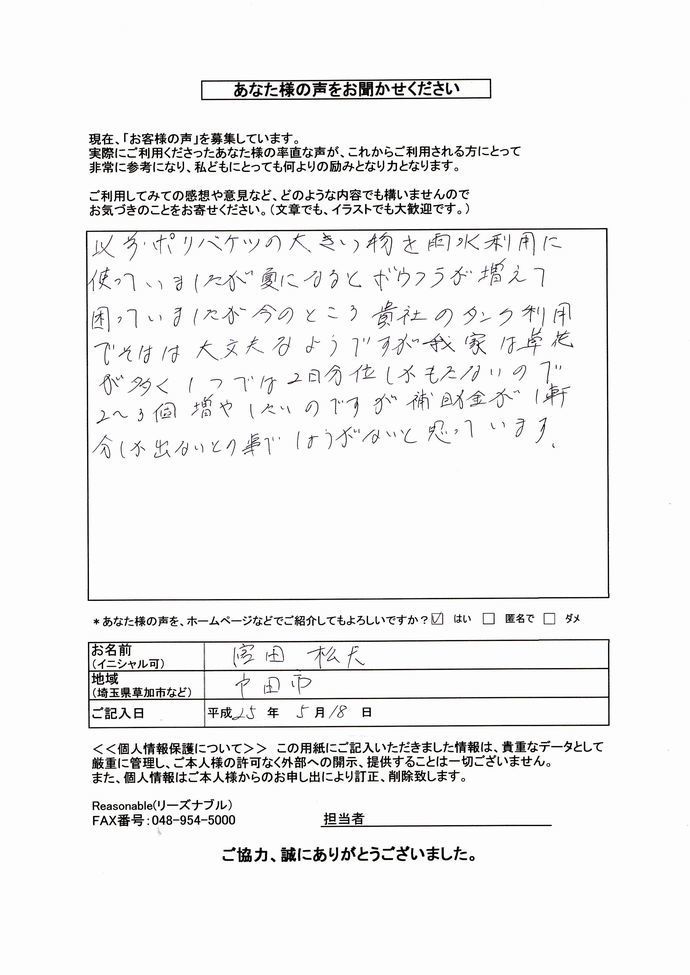 あなた様の声をお聞かせください
現在、「お客様の声」を募集しています。
実際にご利用くださったあなた様の率直な声が、これからご利用される方にとって
非常に参考になり、私どもにとっても何よりの励みとなり力となります。
ご利用してみての感想や意見など、どのような内容でも構いませんので
お気づきのことをお寄せください。（文章でも、イラストでも大歓迎です。）
以前ポリバケツの大きい物を雨水利用に
使っていましたが夏になるとボウフラが増えて
困っていましたが今のところ貴社のタンク利用
でそれは大丈夫なようですが我家は草花
が多く1つでは2日分位しかもたないので
2〜3個増やしたいのですが補助金が1軒
分しか出ないとの事でしょうがないと思っています。
*あなた様の声を、ホームページなどでご紹介してもよろしいですか？☑ はい □ 匿名で □ ダメ
お名前 宮田 松夫
（イニシャル可）
地域 戸田市
（埼玉県草加市など）
ご記入日 平成25年 5月18日
<<個人情報保護について>> この用紙にご記入いただきました情報は、貴重なデータとして
厳重に管理し、ご本人様の許可なく外部への開示、提供することは一切ございません。
また、個人情報はご本人様からのお申し出により訂正、削除致します。
Reasonable(リーズナブル)
FAX番号：048-954-5000 担当者
ご協力、誠にありがとうございました。